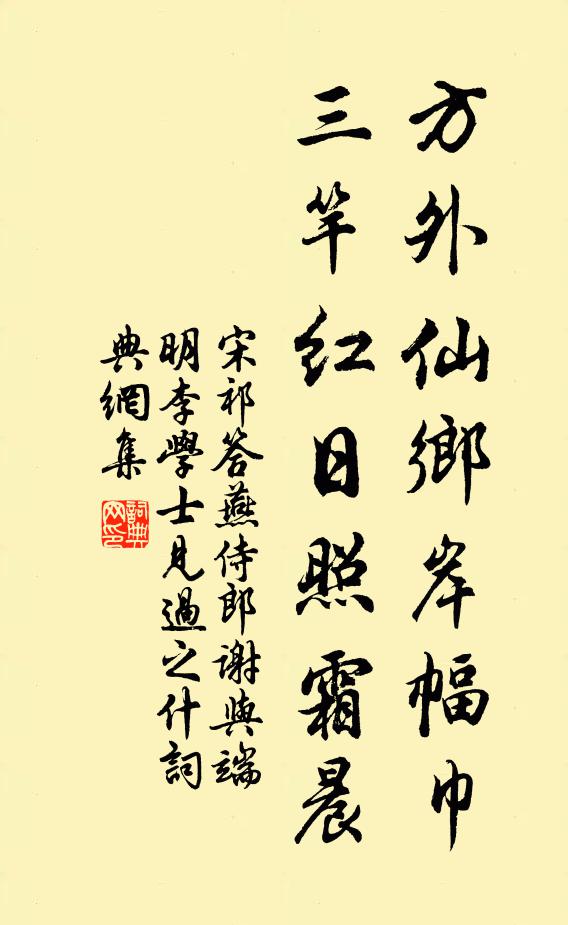 方外仙鄉岸幅巾
三竿紅日照霜晨
宋祁答燕侍郎謝與端
明李學士見過之什詞
典網集
詞典網印